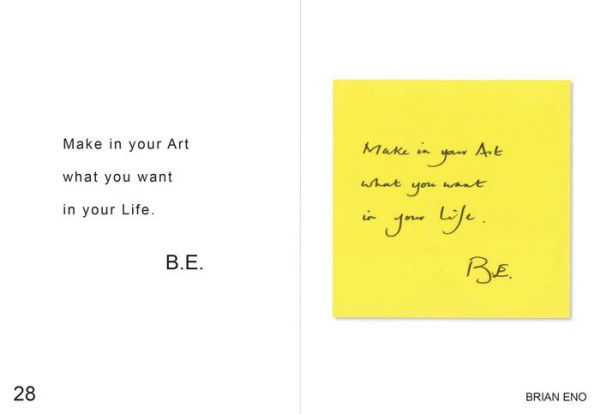 Make in your Art
what you want
in your Life.
B.E.
28
Make in your Art
what you want
in your Life.
B.E.
BRIAN ENO